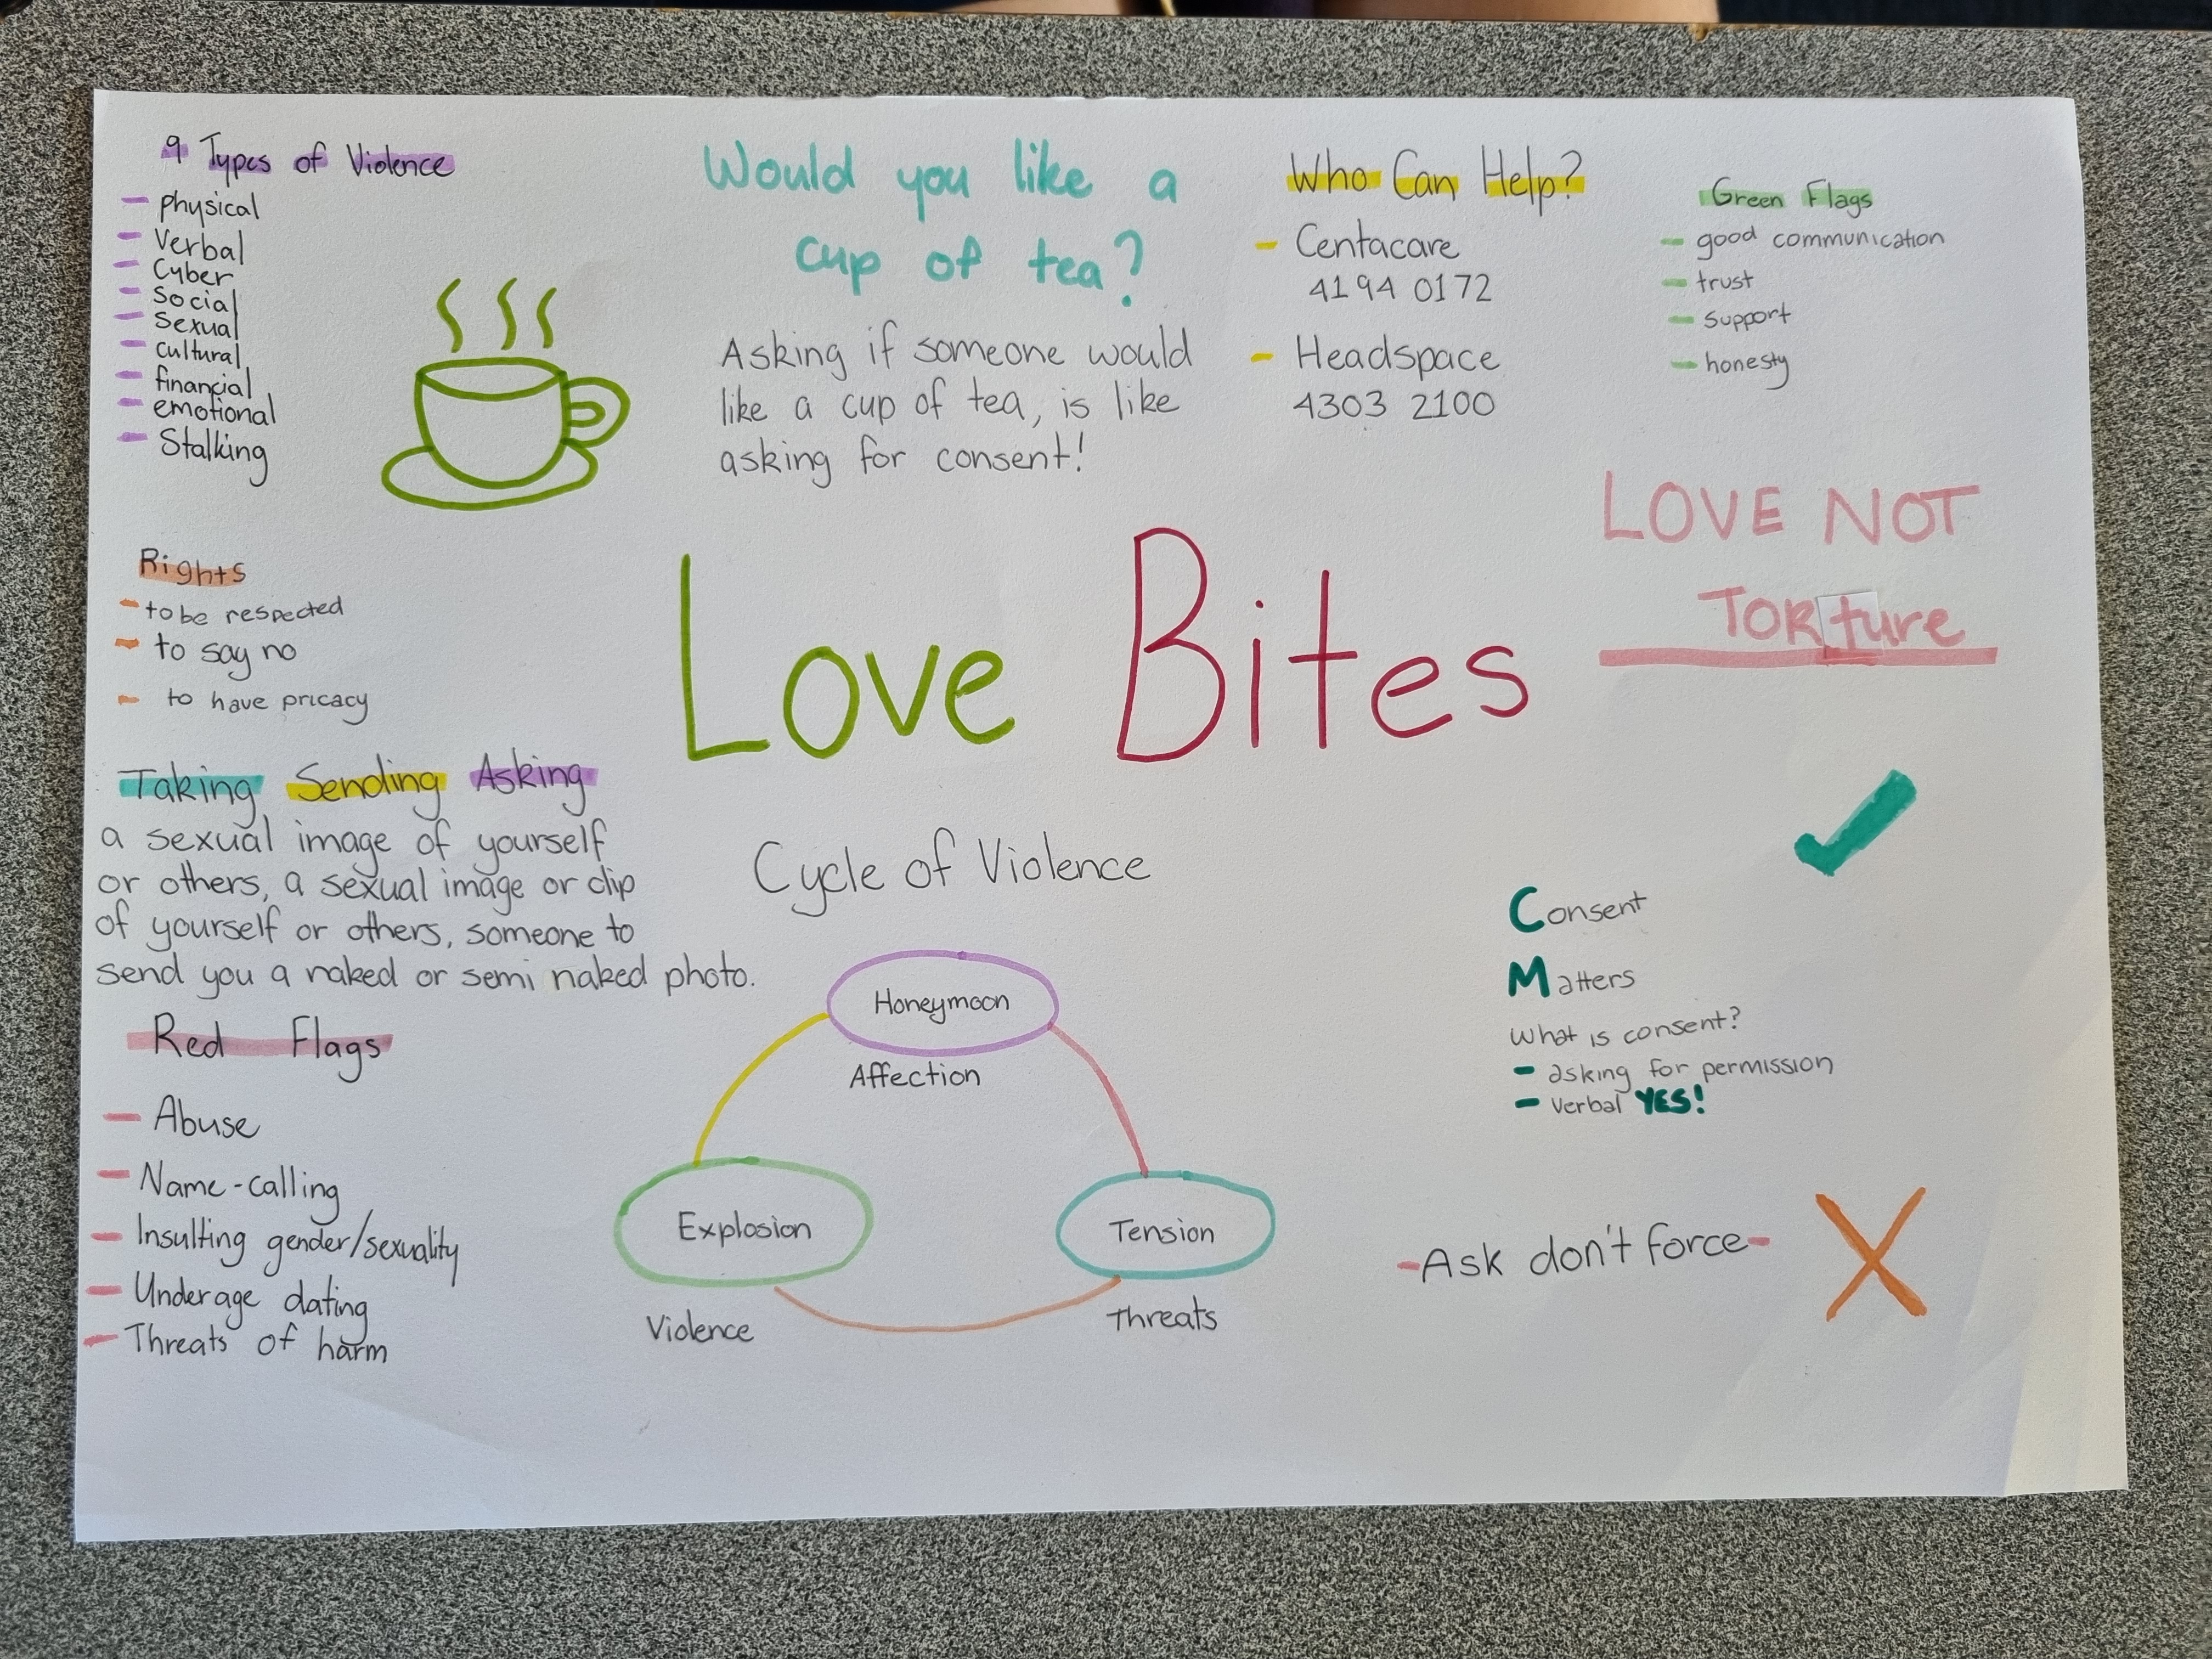 9 Types of Violence
physical
Verbal
Cyber
Social
Sexual
cultural
financial
emotional
Stalking
Would you like a
cup of tea?
Asking if someone would
like a cup of tea, is like
asking for consent!
Who Can Help?
Centacare
4194 0172
Headspace
4303 2100
Green Flags
good communication
trust
support
honesty
LOVE NOT
TORture
Rights
to be respected
to say no
to have pricacy
Love Bites
Taking Sending Asking
a sexual image of yourself
or others, a sexual image or clip
of yourself or others, someone to
send you a naked or semi naked photo.
Red Flags
Abuse
Name-calling
Insulting gender/sexuality
Underage dating
Threats of harm
Cycle of Violence
Honeymoon
Affection
Explosion
Violence
Tension
Threats
Consent
Matters
What is consent?
- asking for permission
- Verbal YES!
-Ask don't force-